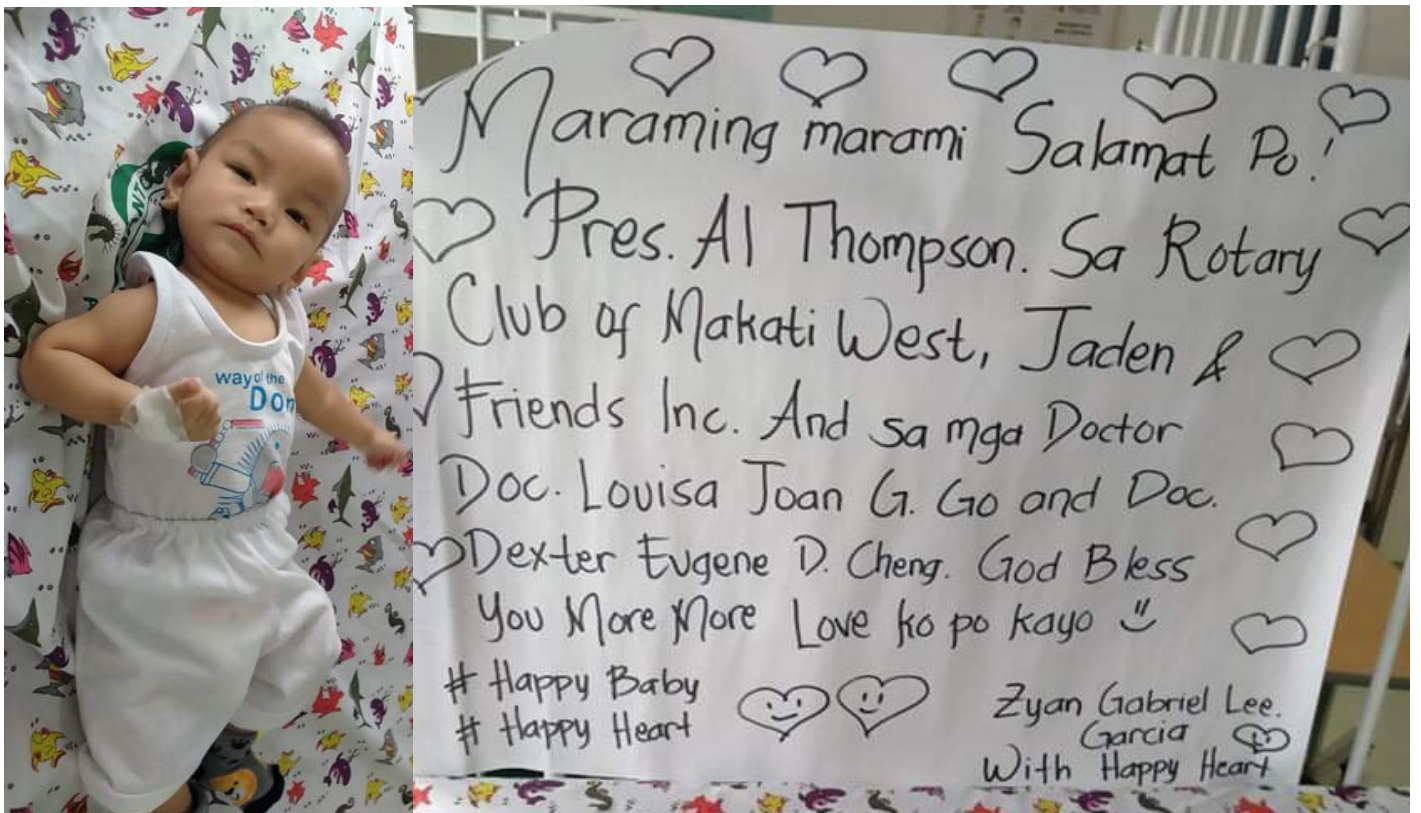 NTO
way of the
Don
Maraming marami Salamat Po!
Pres. Al Thompson. Sa Rotary
Club of Makati West, Jaden &
Friends Inc. And sa mga Doctor
Doc. Louisa Joan G. Go and Doc.
Dexter Eugene D. Cheng. God Bless
You More More Love ko po kayo
# Happy Baby
# Happy Heart
Zyan Gabriel Lee.
Garcia
With Happy Heart